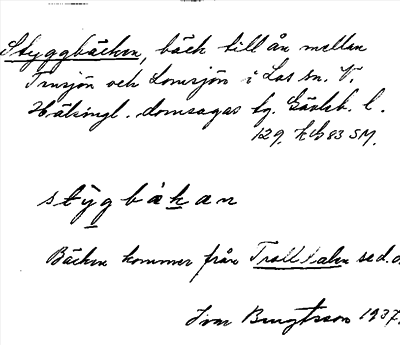 Styggbäcken, bäck till ån mellan
Tensjön och Lomsjön i Los sn. V.
Hälsingl. domsagas tg. Gävleb. l.
129. kb 83 SM.
stỳgbàkan
Bäcken kommer från Trolltalen se d.o.
Ivar Bengtsson 1937.